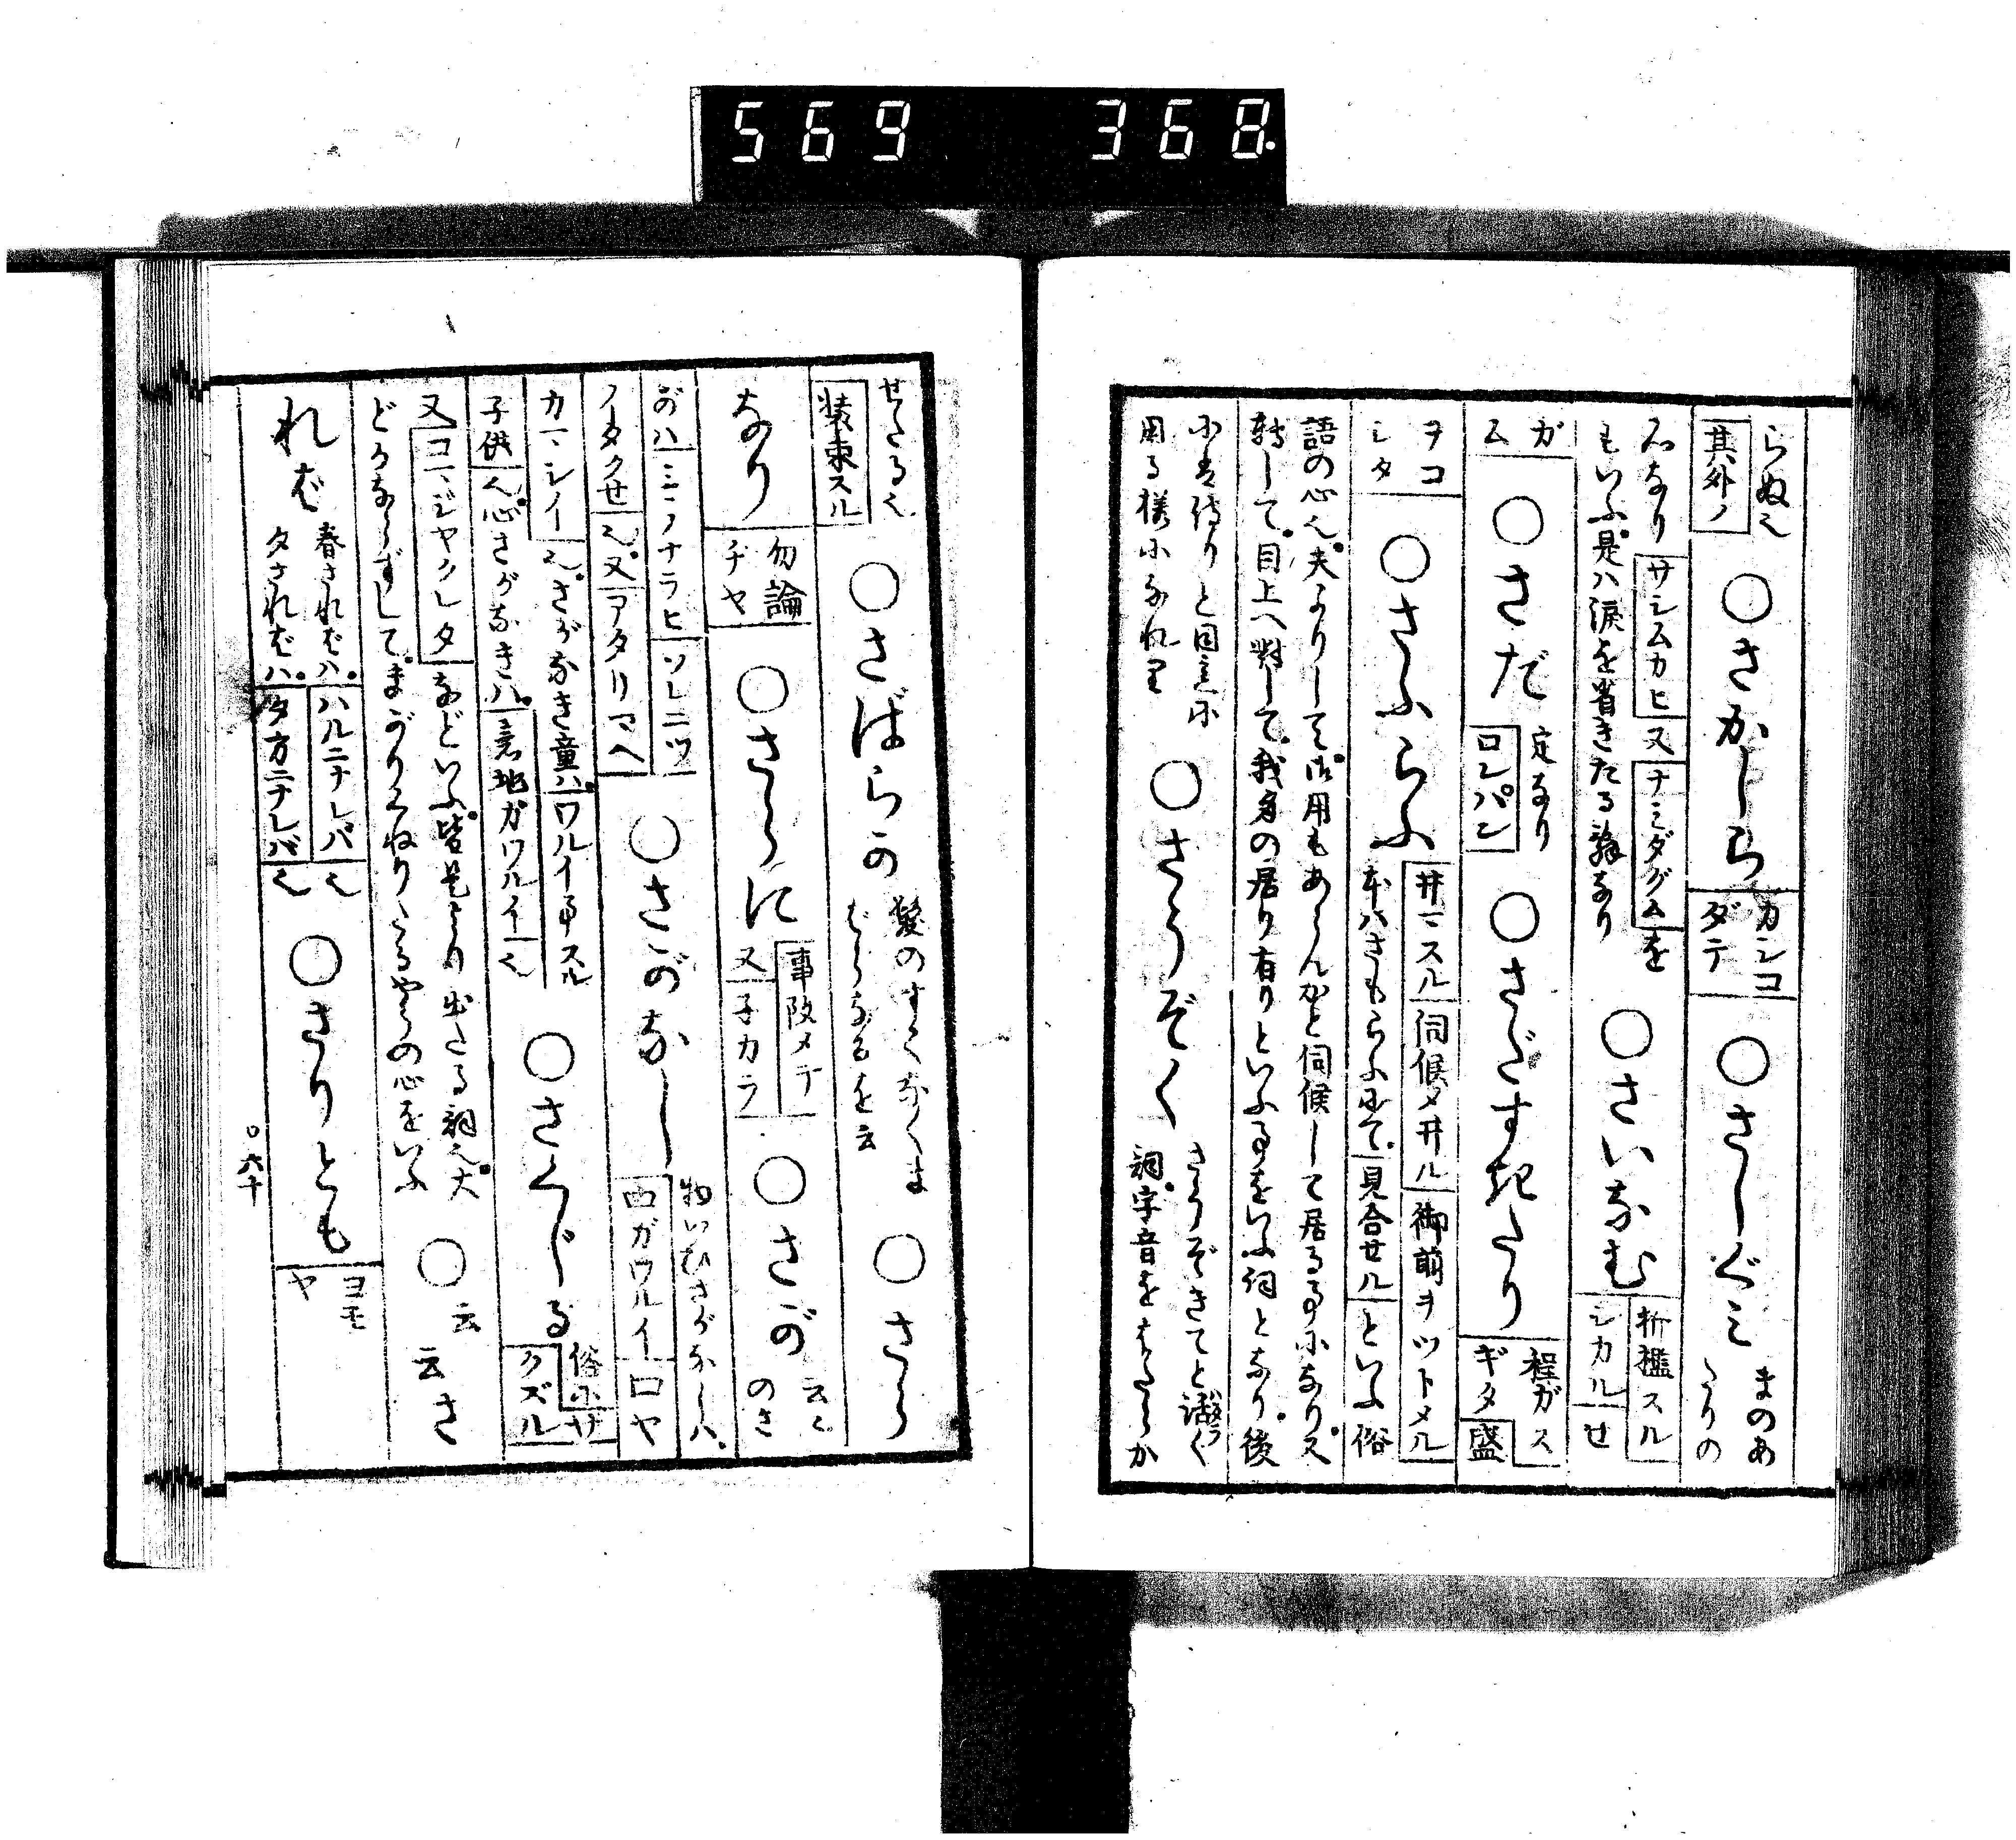 569 368
らぬ也
其外ノ
○さかしら
カシコ
ダテ
○さしぐみ
まのあ
たりの
心なり サシムカヒ 又 ナミダグム を
もいふ是ハ涙を省きたる辞なり
○さいなむ
折檻スル
シカル せ
ガ
ム
○さだ
定なり
ロンパン
○さだすぎたり
程ガス
ギタ 盛
ヲコ
シタ
○さふらふ
井マスル 伺候タ井ル 御前ヲツトメル
本ハさもらふにて 見合セル といふ俗
語の心也夫よりして御用もあらんかと伺候して居る事になり又
転して目上へ対して我身の居り有りといふ事をいふ詞となり後
にハ侍りと同意に
用る様になれり
○さうぞく
さうぞきてと活く
詞字音をはたらか
せたる也
装束スル
○さばらの
髪のすくなくま
ばらなるを云
○さら
なり
勿論
ヂヤ
○さらに
事改メテ
又 子カラ
○さが
云々
のさ
がハ ミノナラヒ ソレニツ
ノタクせ 也又 アタリマヘ
○さがなし
物いひさがなしハ
口ガワルイ 口ヤ
カマシイ 也さがなき童ハ ワルイ事スル
子供 也心さがなきハ 意地ガワルイ 也
○さくじる
俗にサ
クズル
又 コマシヤクレタ などいふ皆是より出たる詞也大
どかならずしてまがりくねりたるやうの心をいふ
○云
云さ
れば
春さればハ ハルニナレバ 也
夕さればハ 夕方ニナレバ 也
○さりとも
ヨモ
ヤ
○六十